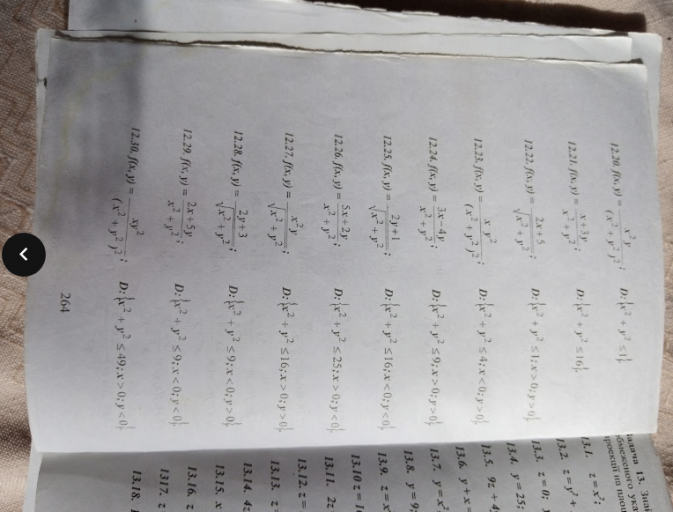 12.20. f(x, y) = x²y / (x² + y²)²; D: {x² + y² ≤ 1}.
12.21. f(x, y) = x+3y / x² + y²; D: {x² + y² ≤ 16}.
12.22. f(x, y) = 2x+5 / √x² + y²; D: {x² + y² ≤ 1; x > 0; y > 0}.
12.23. f(x, y) = x y² / (x² + y²)²; D: {x² + y² ≤ 4; x < 0; y > 0}.
12.24. f(x, y) = 3x−4y / x² + y²; D: {x² + y² ≤ 9; x > 0; y > 0}.
12.25. f(x, y) = 2y+1 / √x² + y²; D: {x² + y² ≤ 16; x < 0; y < 0}.
12.26. f(x, y) = 5x+2y / x² + y²; D: {x² + y² ≤ 25; x > 0; y < 0}.
12.27. f(x, y) = x²y / √x² + y²; D: {x² + y² ≤ 16; x > 0; y > 0}.
12.28. f(x, y) = 2y+3 / √x² + y²; D: {x² + y² ≤ 9; x < 0; y > 0}.
12.29. f(x, y) = 2x+5y / x² + y²; D: {x² + y² ≤ 9; x < 0; y < 0}.
12.30. f(x, y) = xy² / (x² + y²)²; D: {x² + y² ≤ 49; x > 0; y < 0}.
264
Задача 13.
13.1. z = x²;
13.2. z = y² +
13.3. z = 0;
13.4. y = 25;
13.5. 9z + 4
13.6. y + x =
13.7. y = x²
13.8. y = 9;
13.9. z = x
13.10 z =
13.11. 2z
13.12. z =
13.13. z
13.14. 4z
13.15. x
13.16. z
1317. z
13.18.